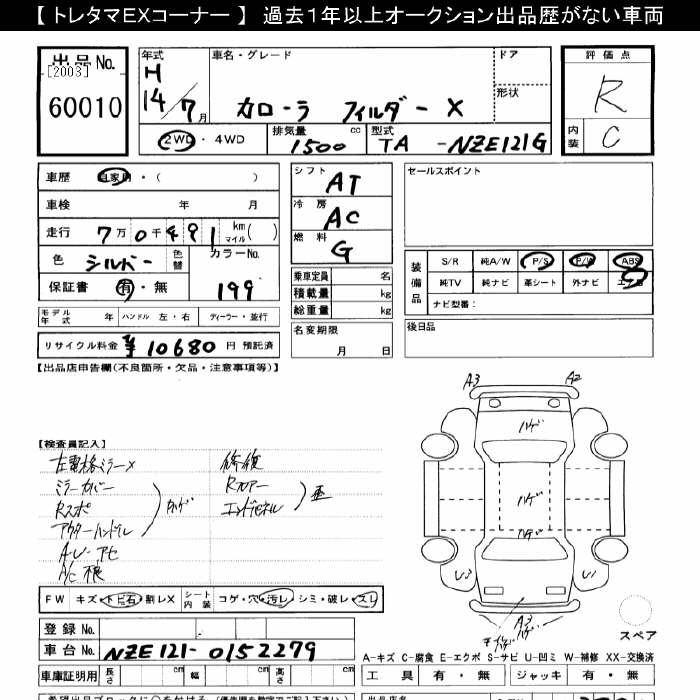 【 トレタマEXコーナー 】 過去1年以上オークション出品歴がない車両
出品No.
[2003]
60010
年式
H
14/7月
車名・グレード
カローラ フィルダー X
ドア
形状
評価点
R
内装
C
2WD・4WD
排気量
1500 cc
型式
TA -NZE121G
車歴 自家用・( )
車検 年 月
走行 7万0千491 km マイル( )
色 シルバー 色替
カラーNo.
199
保証書 有・無
モデル年式 年 ハンドル 左・右 ディーラー・並行
リサイクル料金 ¥10680 円 預託済
シフト
AT
冷房
AC
燃料
G
乗車定員 名
積載量 kg
総重量 kg
名変期限
月 日
セールスポイント
装備品
S/R 純A/W P/S P/W ABS
純TV 純ナビ 革シート 外ナビ エアB
ナビ型番:
後日品
【出品店申告欄(不良箇所・欠品・注意事項等)】
【検査員記入】
左電格ミラーX
ミラーカバー
Rスポ
アウターハンドル
カハゲ
A/C
修復
Rフロアー
エンドパネル
歪
A3
A2
ハゲ
ハゲ
ハゲ
U3
U1
A3
ハゲ
FW キズ・トビ石・割レX シート内装 コゲ・穴・汚レ・シミ・破レ・スレ
登録No.
車台No. NZE121-0152279
車庫証明用 長さ cm 幅 cm 高さ cm
スペア
A-キズ C-腐食 E-エクボ S-サビ U-凹ミ W-補修 XX-交換済
工具 有・無 ジャッキ 有・無
出品店名